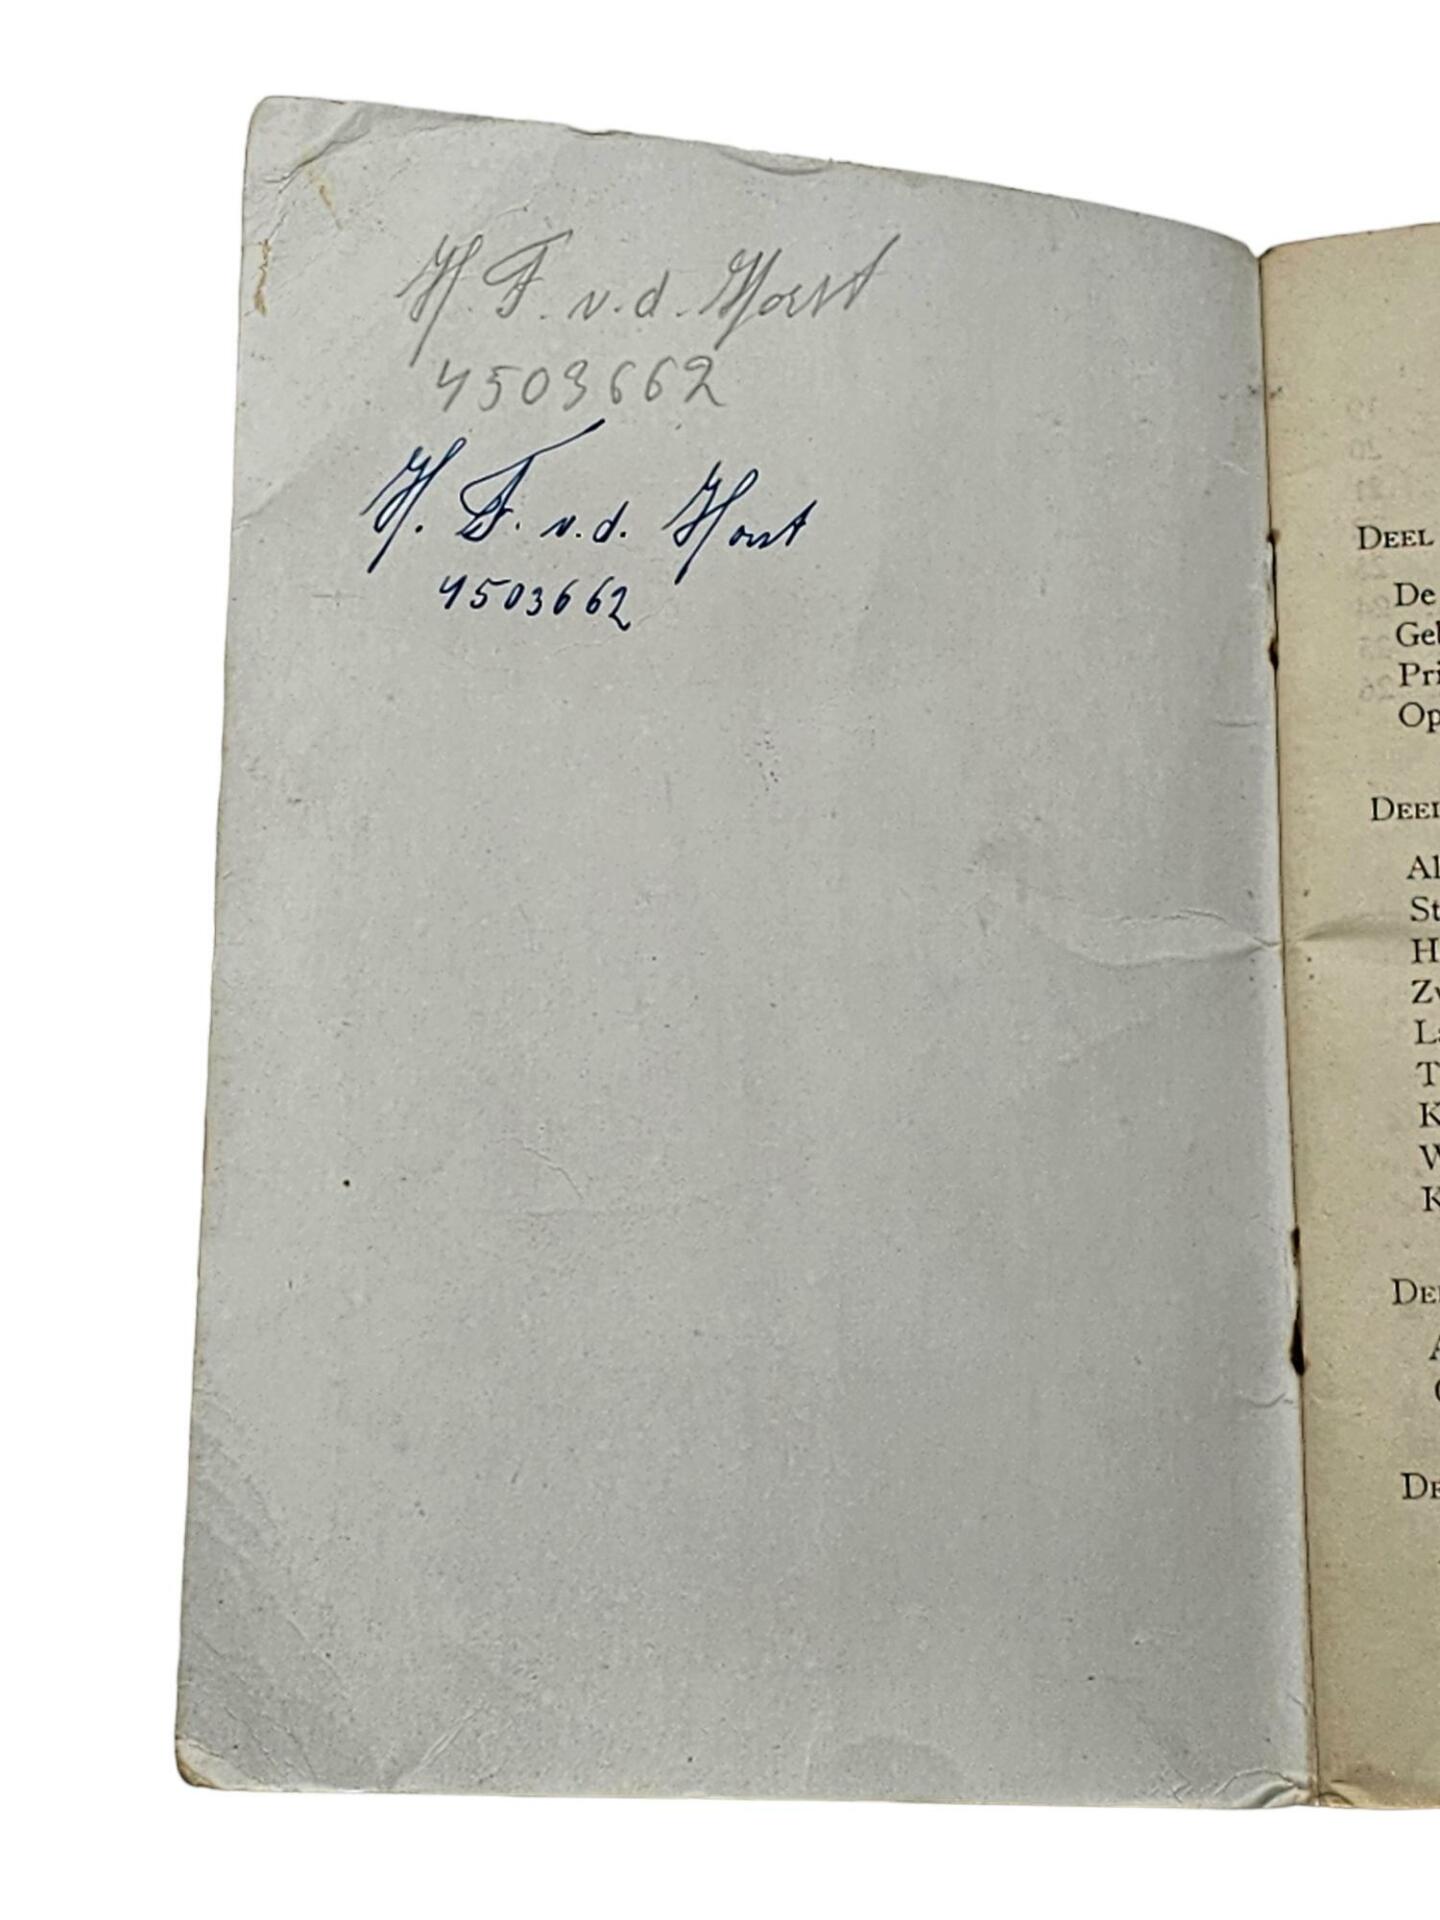 H. F. v.d. Horst
4503662
H. F. v.d. Horst
4503662
DEEL
De
Geb
Pri
Op
DEEL
Al
St
H
Zw
La
T
K
W
K
DE
A
DE